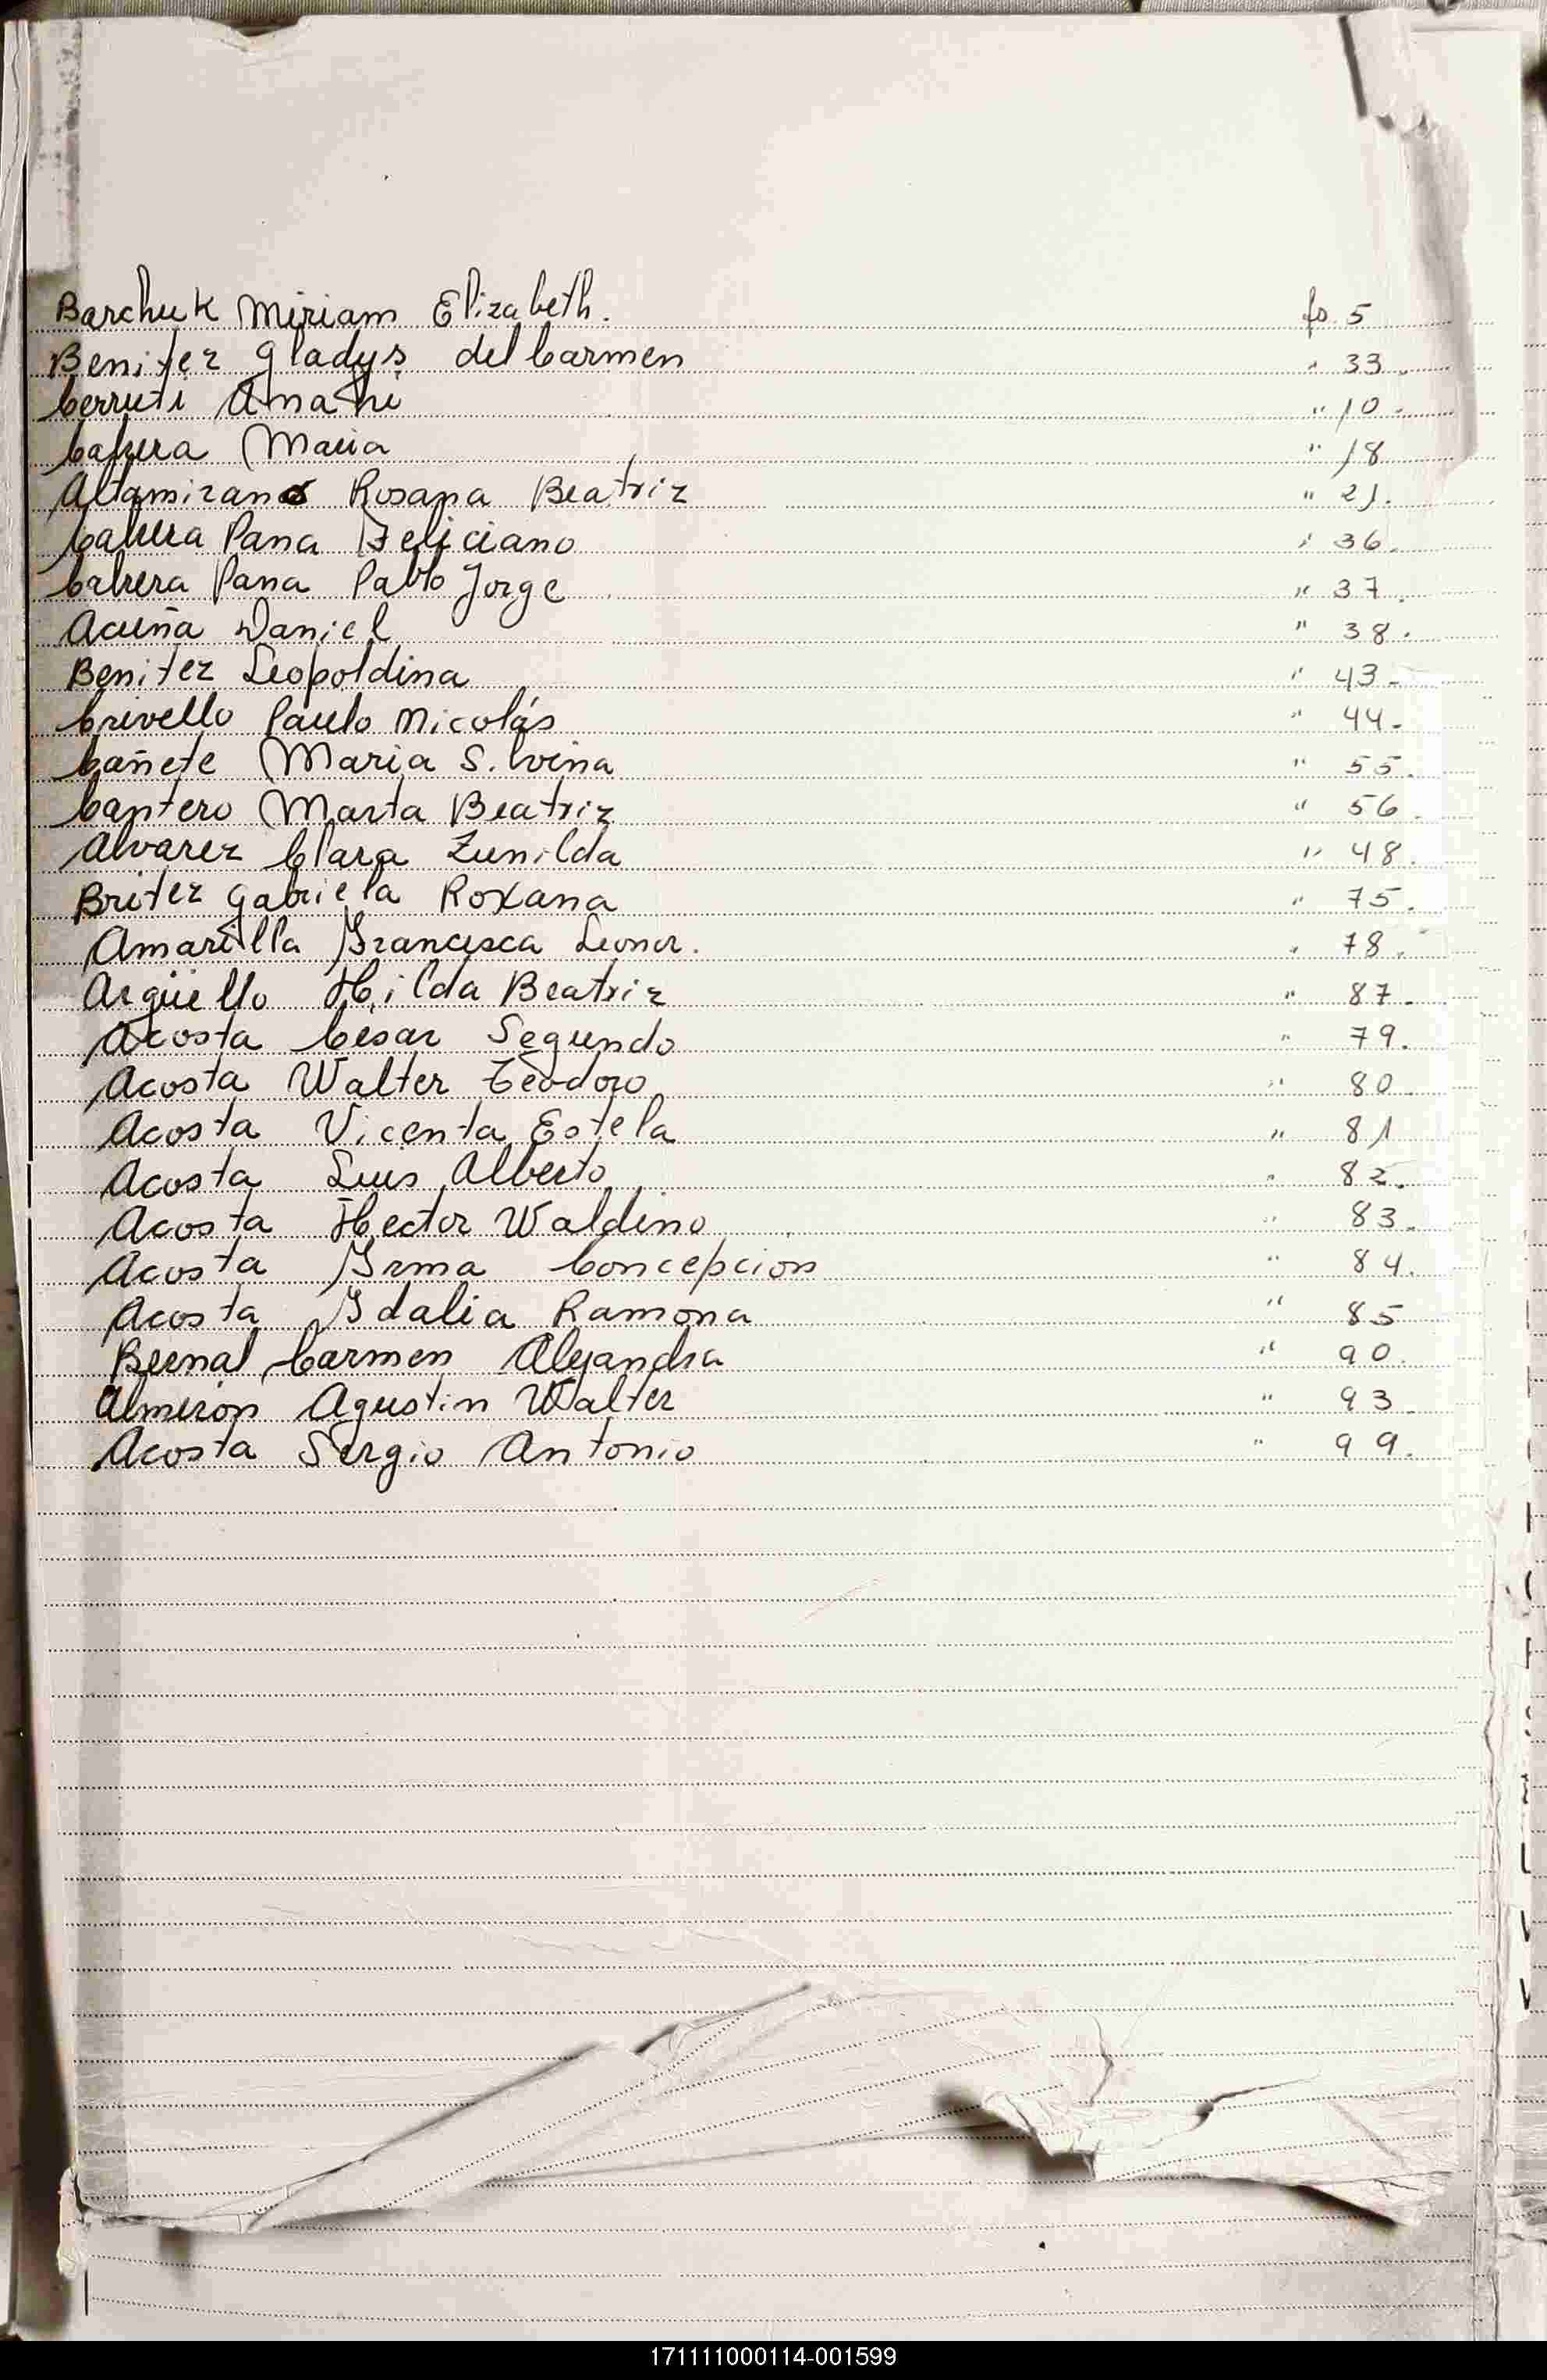 Barchuk Miriam Elizabeth. fo 5
Benitez Gladys del Carmen " 33.
Cerruti Amahi " 10.
Cabrera Maria " 18
Altamirano Rosana Beatriz " 21.
Cabrera Pana Feliciano " 36.
Cabrera Pana Pablo Jorge " 37.
Acuña Daniel " 38.
Benitez Leopoldina " 43.
Crivello Paulo Nicolás " 44.
Cañete Maria Silvina " 55.
Cantero Marta Beatriz " 56.
Alvarez Clara Zunilda " 48.
Britez Gabriela Roxana " 75.
Amarilla Francisca Leonor. " 78.
Argüello Hilda Beatriz " 87.
Acosta Cesar Segundo " 79.
Acosta Walter Teodoro " 80.
Acosta Vicenta Estela " 81
Acosta Luis Alberto " 82.
Acosta Hector Waldino " 83.
Acosta Irma Concepcion " 84.
Acosta Idalia Ramona " 85
Bernal Carmen Alejandra " 90.
Almirón Agustin Walter " 93.
Acosta Sergio Antonio " 99.
171111000114-001599